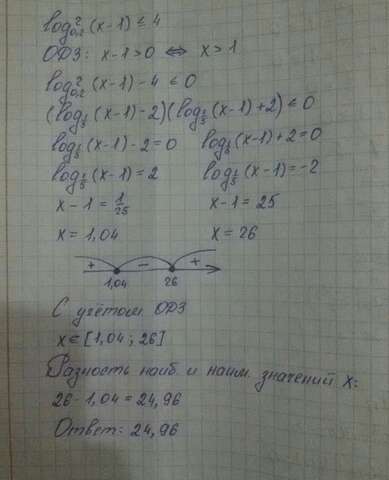 log²₀,₂ (x-1) ≤ 4
ОДЗ: x-1>0 ⇔ x>1
log²₀,₂ (x-1) - 4 ≤ 0
(log_{1/5} (x-1) - 2)(log_{1/5} (x-1) + 2) ≤ 0
log_{1/5} (x-1) - 2 = 0 log_{1/5} (x-1) + 2 = 0
log_{1/5} (x-1) = 2 log_{1/5} (x-1) = -2
x - 1 = 1/25 x - 1 = 25
x = 1,04 x = 26
+ - +
1,04 26
С учётом ОДЗ
x ∈ [1,04 ; 26]
Разность наиб. и наим. значений x:
26 - 1,04 = 24,96
Ответ: 24,96